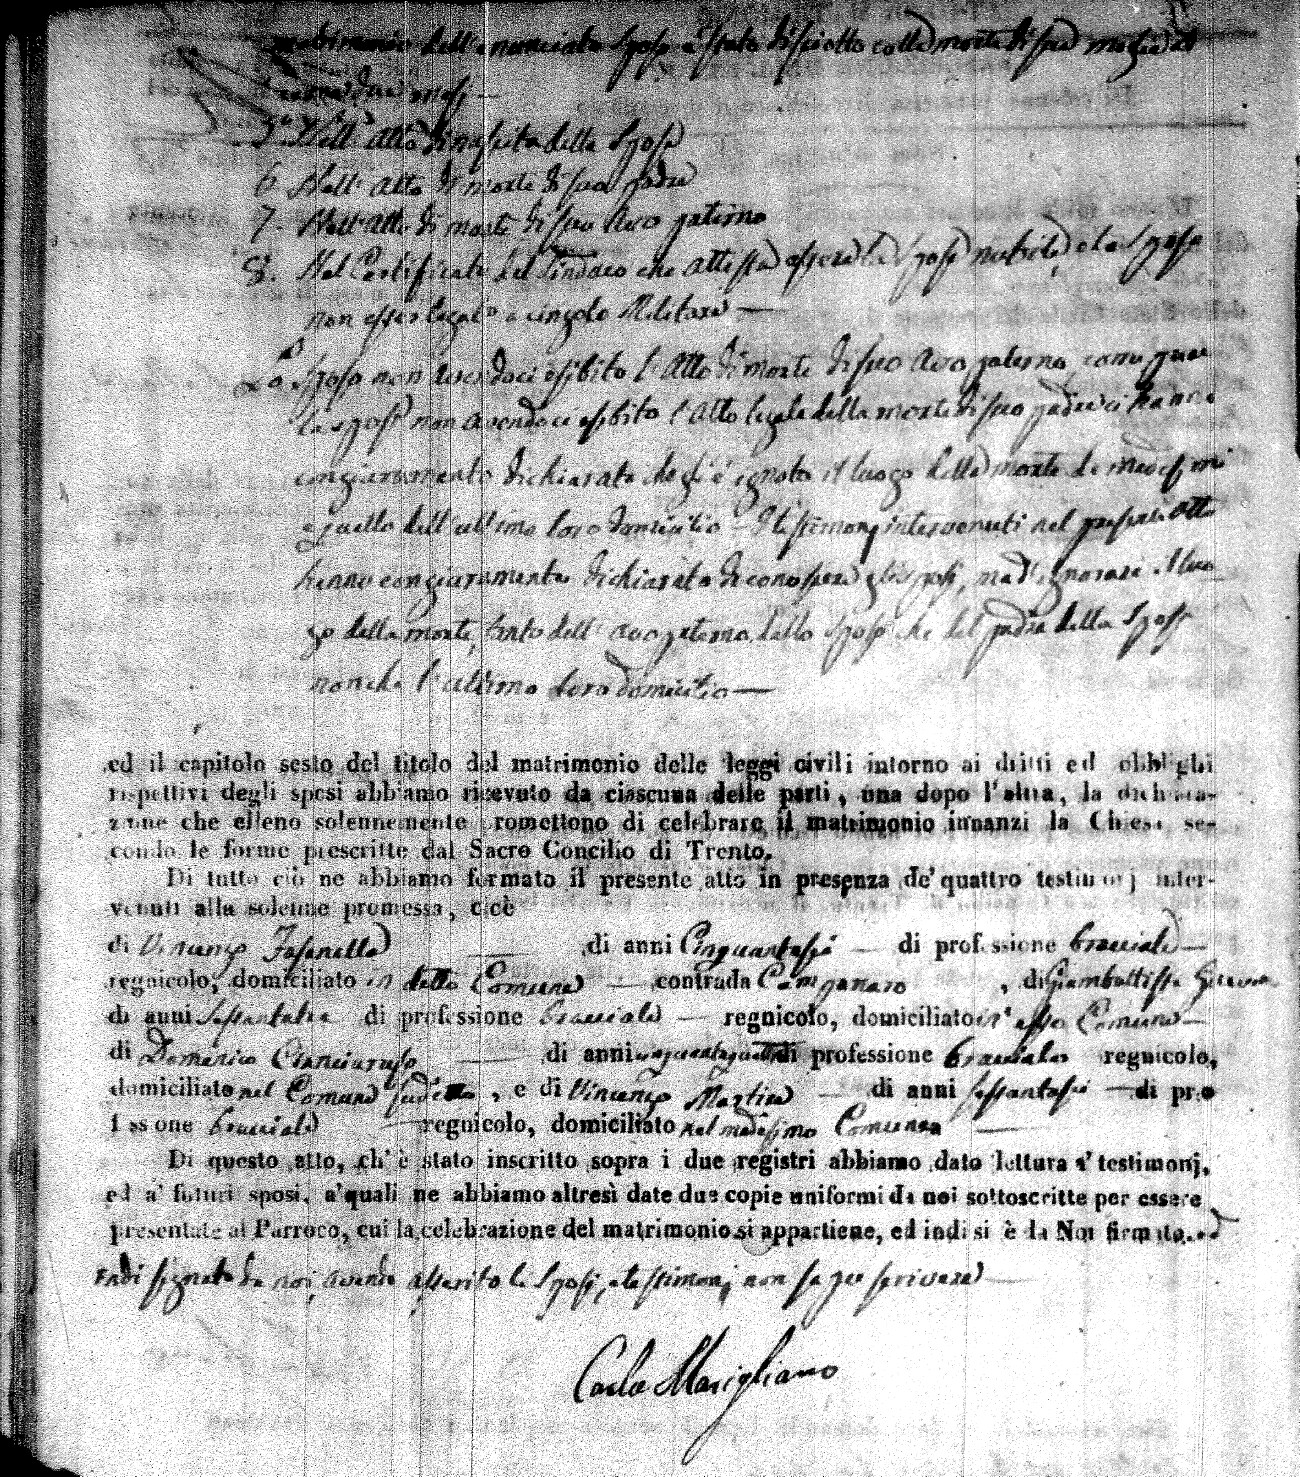 matrimonio dell'enunciato Sposo è stato disciolto colla morte di sua moglie
due mesi —
5° Nell'atto di nascita della Sposa
6 Nell'atto di morte di suo padre
7. Nell'atto di morte di suo Avo paterno
8. Nel Certificato del Sindaco che attesta essere lo Sposo nubile, e la Sposa
non esser legato a cingolo Militare —
Lo Sposo non avendoci esibito l'Atto di morte di suo Avo paterno, come pure
la sposa non avendoci esibito l'Atto legale della morte di suo padre ci hanno
congiuramento dichiarato che gl'è ignoto il luogo della morte de medesimi
e quello dell'ultimo loro domicilio — I testimonj intervenuti nel presente atto
hanno congiuramento dichiarato di conoscere gli sposi, ma d'ignorare il luo
go della morte, tanto dell'avo paterno dello Sposo che del padre della Sposa
nonche l'ultimo loro domicilio —
ed il capitolo sesto del titolo del matrimonio delle leggi civili intorno ai dritti ed obblighi
rispettivi degli sposi abbiamo ricevuto da ciascuna delle parti, una dopo l'altra, la dichiara-
zione che elleno solennemente promettono di celebrare il matrimonio innanzi la Chiesa se-
condo le forme prescritte dal Sacro Concilio di Trento.
Di tutto ciò ne abbiamo formato il presente atto in presenza de' quattro testimonj inter-
venuti alla solenne promessa, cioè
di Vincenzo Fasanella — di anni Cinquantasei — di professione bracciale —
regnicolo, domiciliato in detto Comune — contrada Campanaro , di Giambattista
di anni Sessantatre di professione bracciale — regnicolo, domiciliato in esso Comune —
di Domenico Cianciaruso — di anni cinquantaquattro di professione bracciale regnicolo,
domiciliato nel Comune sudetto , e di Vincenzo Martino — di anni sessantasei — di pro
fessione bracciale — regnicolo, domiciliato nel medesimo Comune —
Di questo atto, ch' è stato inscritto sopra i due registri abbiamo dato lettura a' testimonj,
ed a' futuri sposi, a' quali ne abbiamo altresì date due copie uniformi da noi sottoscritte per essere
presentate al Parroco, cui la celebrazione del matrimonio si appartiene, ed indi si è da Noi firmato. ed
indi segnato da noi, avendo asserito li Sposi, e testimonj non saper scrivere —
Carlo Marigliano